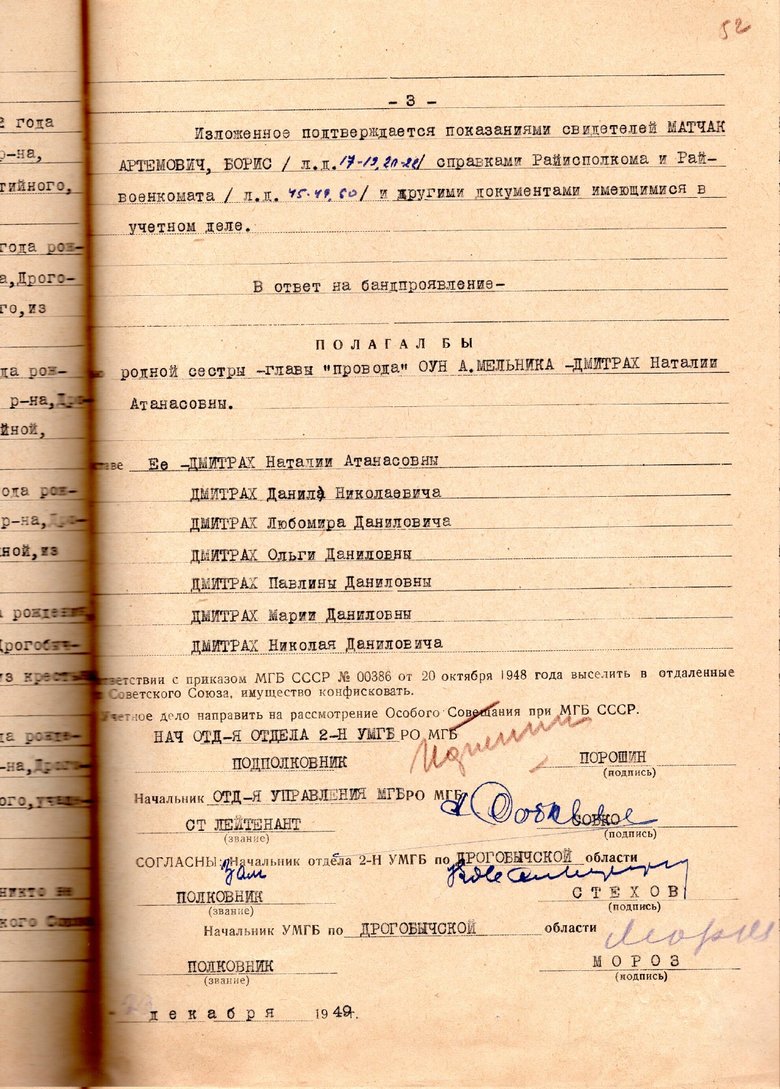 52
- 3 -
2 года
Изложенное подтверждается показаниями свидетелей МАТЧАК
р-на,
АРТЕМОВИЧ, БОРИС / л.д. 17-19, 20-22/ справками Райисполкома и Рай-
тийного,
военкомата / л.д. 45-49, 50/ и другими документами имеющимися в
учетном деле.
года рож-
а,Дрого-
В ответ на бандпроявление-
го,из
ПОЛАГАЛ БЫ
да рож-
ю родной сестры -главы "провода" ОУН А.МЕЛЬНИКА -ДМИТРАХ Наталии
р-на,Дро-
Атанасовны.
йной,
ставе Ее -ДМИТРАХ Наталии Атанасовны
года рож-
ДМИТРАХ Данила Николаевича
р-на,Дро-
ДМИТРАХ Любомира Даниловича
ной,из
ДМИТРАХ Ольги Даниловны
ДМИТРАХ Павлины Даниловны
а рождения
ДМИТРАХ Марии Даниловны
Дрогобыч-
ДМИТРАХ Николая Даниловича
из кресть
ответствии с приказом МГБ СССР № 00386 от 20 октября 1948 года выселить в отдаленные
Советского Союза, имущество конфисковать.
Учетное дело направить на рассмотрение Особого Совещания при МГБ СССР.
да рожде-
НАЧ ОТД-Я ОТДЕЛА 2-Н УМГБ РО МГБ
-на,Дрого
ПОДПОЛКОВНИК ПОРОШИН
(подпись)
ого,учащ
Начальник ОТД-Я УПРАВЛЕНИЯ МГБ РО МГБ
СТ ЛЕЙТЕНАНТ СОБКО
(звание) (подпись)
СОГЛАСНЫ: Начальник отдела 2-Н УМГБ по ДРОГОБЫЧСКОЙ области
Зам
никто не
ПОЛКОВНИК СТЕХОВ
(звание) (подпись)
кого Союза
Начальник УМГБ по ДРОГОБЫЧСКОЙ области
ПОЛКОВНИК МОРОЗ
(звание) (подпись)
декабря 1949г.